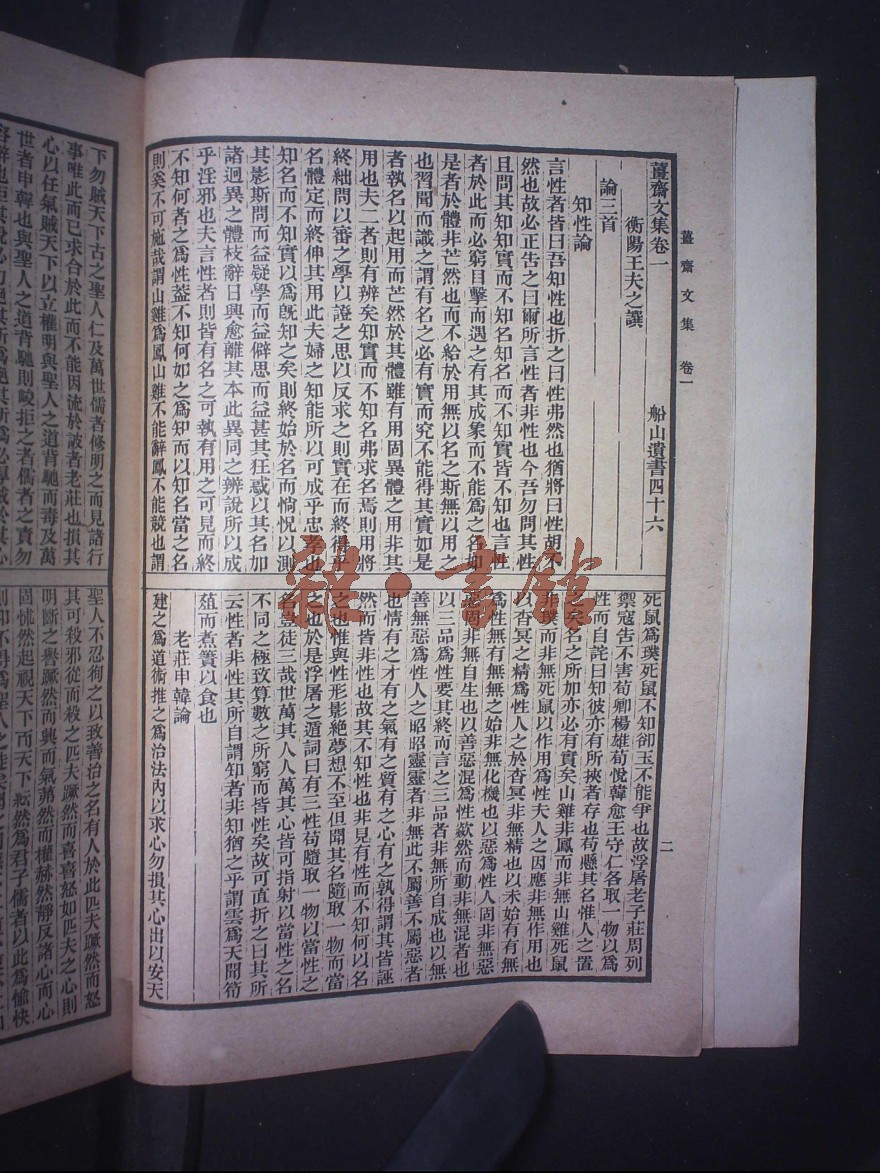 薑齋文集 卷一
薑齋文集卷一 船山遺書四十六
衡陽王夫之譔
論三首
知性論
言性者皆曰吾知性也折之曰性弗然也猶將曰性胡不
然也故必正告之曰爾所言性者非性也今吾勿問其性
且問其知知實而不知名知名而不知實皆不知也言性
者於此而必窮目擊而遇之有其成象而不能爲之名如
是者於體非芒然也而不給於用無以名之斯無以用之
也習聞而識之謂有名之必有實而究不能得其實如是
者執名以起用而芒然於其體雖有用固異體之用非其
用也夫二者則有辨矣知實而不知名弗求名焉則用將
終絀問以審之學以證之思以反求之則實在而終得乎
名體定而終伸其用此夫婦之知能所以可成乎忠孝也
知名而不知實以爲旣知之矣則終始於名而惝怳以測
其影斯問而益疑學而益僻思而益甚其狂惑以其名加
諸迥異之體枝辭日興愈離其本此異同之辨說所以成
乎淫邪也夫言性者則皆有名之可執有用之可見而終
不知何者之爲性葢不知何如之爲知而以知名當之名
則奚不可施哉謂山雞爲鳳山雞不能辭鳳不能競也謂
死鼠爲璞死鼠不知卻玉不能爭也故浮屠老子莊周列
禦寇告不害荀卿楊雄荀悅韓愈王守仁各取一物以爲
性而自詫曰知彼亦有所挾者存也苟懸其名惟人之置
之矣名之所加亦必有實矣山雞非鳳而非無山雞死鼠
非璞而非無死鼠以作用爲性夫人之因應非無作用也
以杳冥之精爲性人之於杳冥非無精也以未始有有無
爲性無有無無之始非無化機也以惡爲性人固非無惡
惡固非無自生也以善惡混爲性歘然而動非無混者也
以三品爲性要其終而言之三品者非無所自成也以無
善無惡爲性人之昭昭靈靈者非無此不屬善不屬惡者
也情有之才有之氣有之質有之心有之孰得謂其皆誣
然而皆非性也故其不知性也非見有性而不知何以名
之也惟與性形影絶夢想不至但聞其名隨取一物而當
之也於是浮屠之遁詞曰有三性苟隨取一物以當性之
名豈徒三哉世萬其人人萬其心皆可指射以當性之名
不同之極致算數之所窮而皆性矣故可直折之曰其所
云性者非性其所自謂知者非知猶之乎謂雲爲天聞笴
葅而煮簀以食也
老莊申韓論
建之爲道術推之爲治法內以求心勿損其心出以安天
二
下勿賊天下古之聖人仁及萬世儒者修明之而見諸行
事唯此而已求合於此而不能因流於詖者老莊也損其
心以任氣賊天下以立權明與聖人之道背馳而毒及萬
世者申韓也與聖人之道背馳則峻拒之者儒者之責勿
聖人不忍徇之以致善治之名有人於此匹夫蹶然而怒
其可殺邪從而殺之匹夫蹶然而喜喜怒如匹夫之心則
明斷之譽蹶然而興而氣茀然而權赫然靜反諸心而心
固怵然起視天下而天下紜然爲君子儒者以此爲愉快